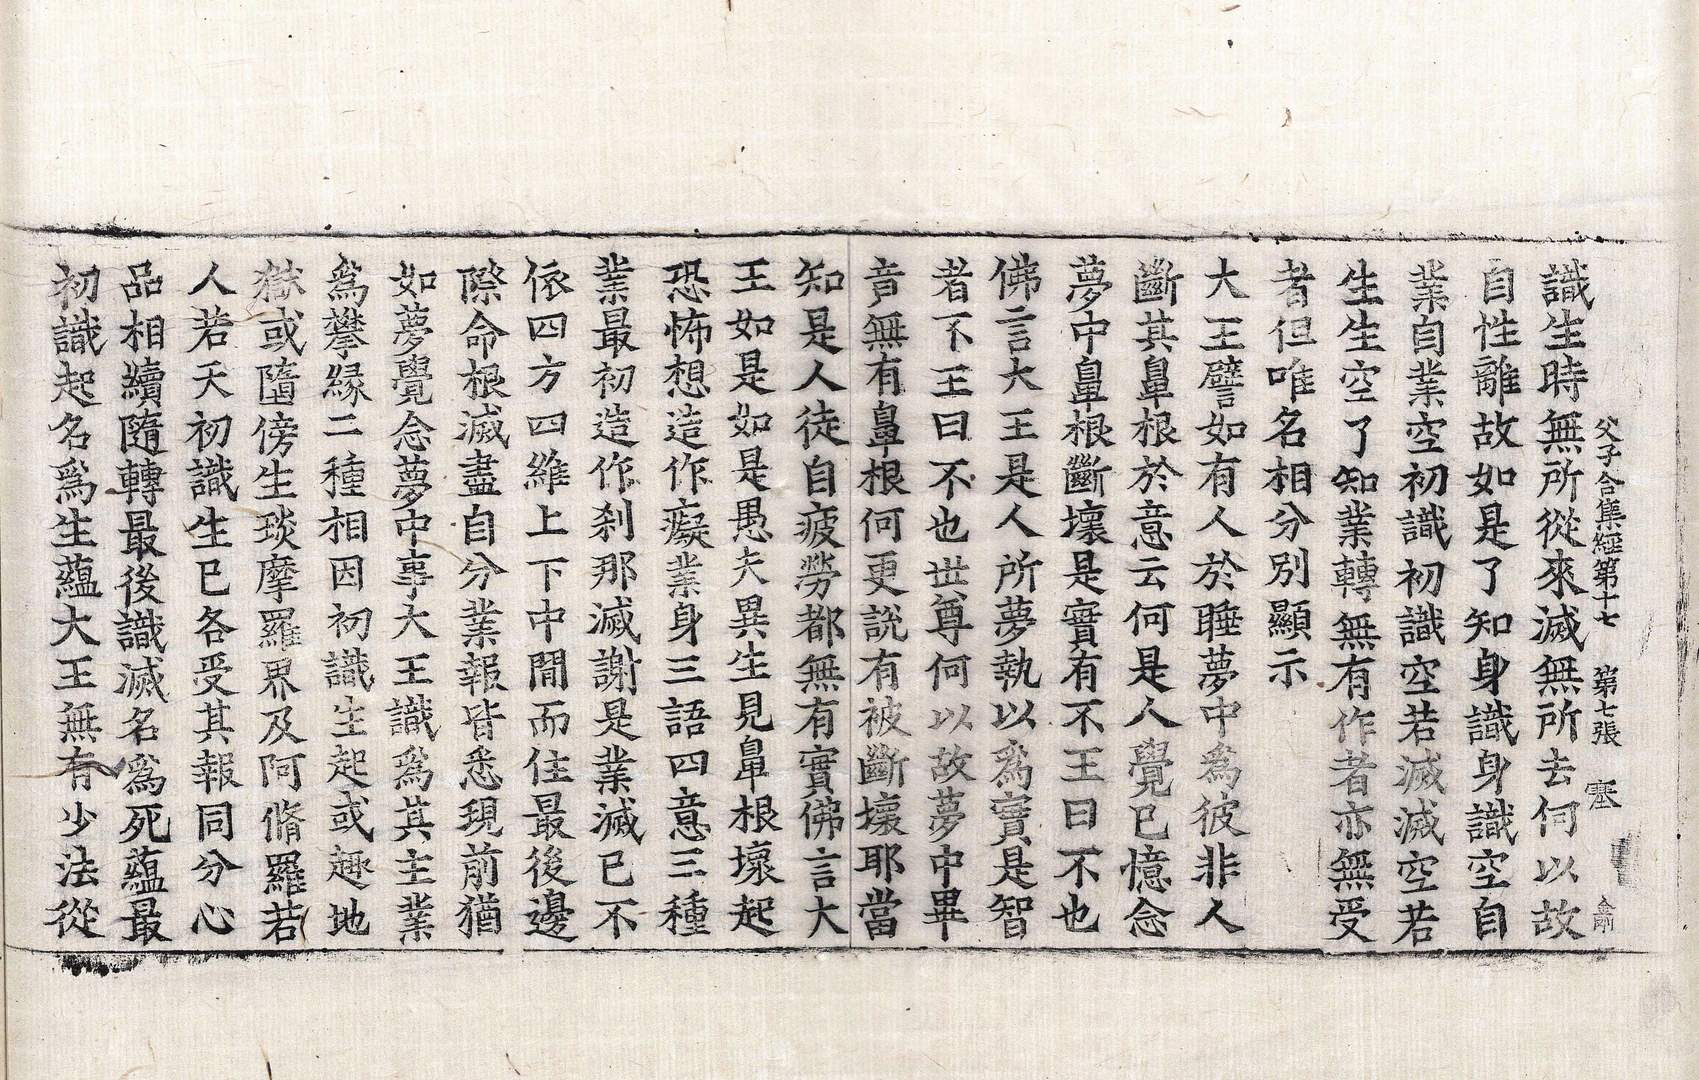 父子合集經第十七　第七張　塞
識生時無所從來滅無所去何以故
自性離故如是了知身識身識空自
業自業空初識初識空若滅滅空若
生生空了知業轉無有作者亦無受
者但唯名相分別顯示
大王譬如有人於睡夢中爲彼非人
斷其鼻根於意云何是人覺已憶念
夢中鼻根斷壞是實有不王曰不也
佛言大王是人所夢執以爲實是智
者不王曰不也世尊何以故夢中畢
竟無有鼻根何更說有被斷壞耶當
知是人徒自疲勞都無有實佛言大
王如是如是愚夫異生見鼻根壞起
恐怖想造作癡業身三語四意三種
業最初造作刹那滅謝是業滅已不
依四方四維上下中間而住最後邊
際命根滅盡自分業報皆悉現前猶
如夢覺念夢中事大王識爲其主業
爲攀緣二種相因初識生起或趣地
獄或墮傍生琰摩羅界及阿脩羅若
人若天初識生已各受其報同分心
品相續隨轉最後識滅名爲死蘊最
初識起名爲生蘊大王無有少法從